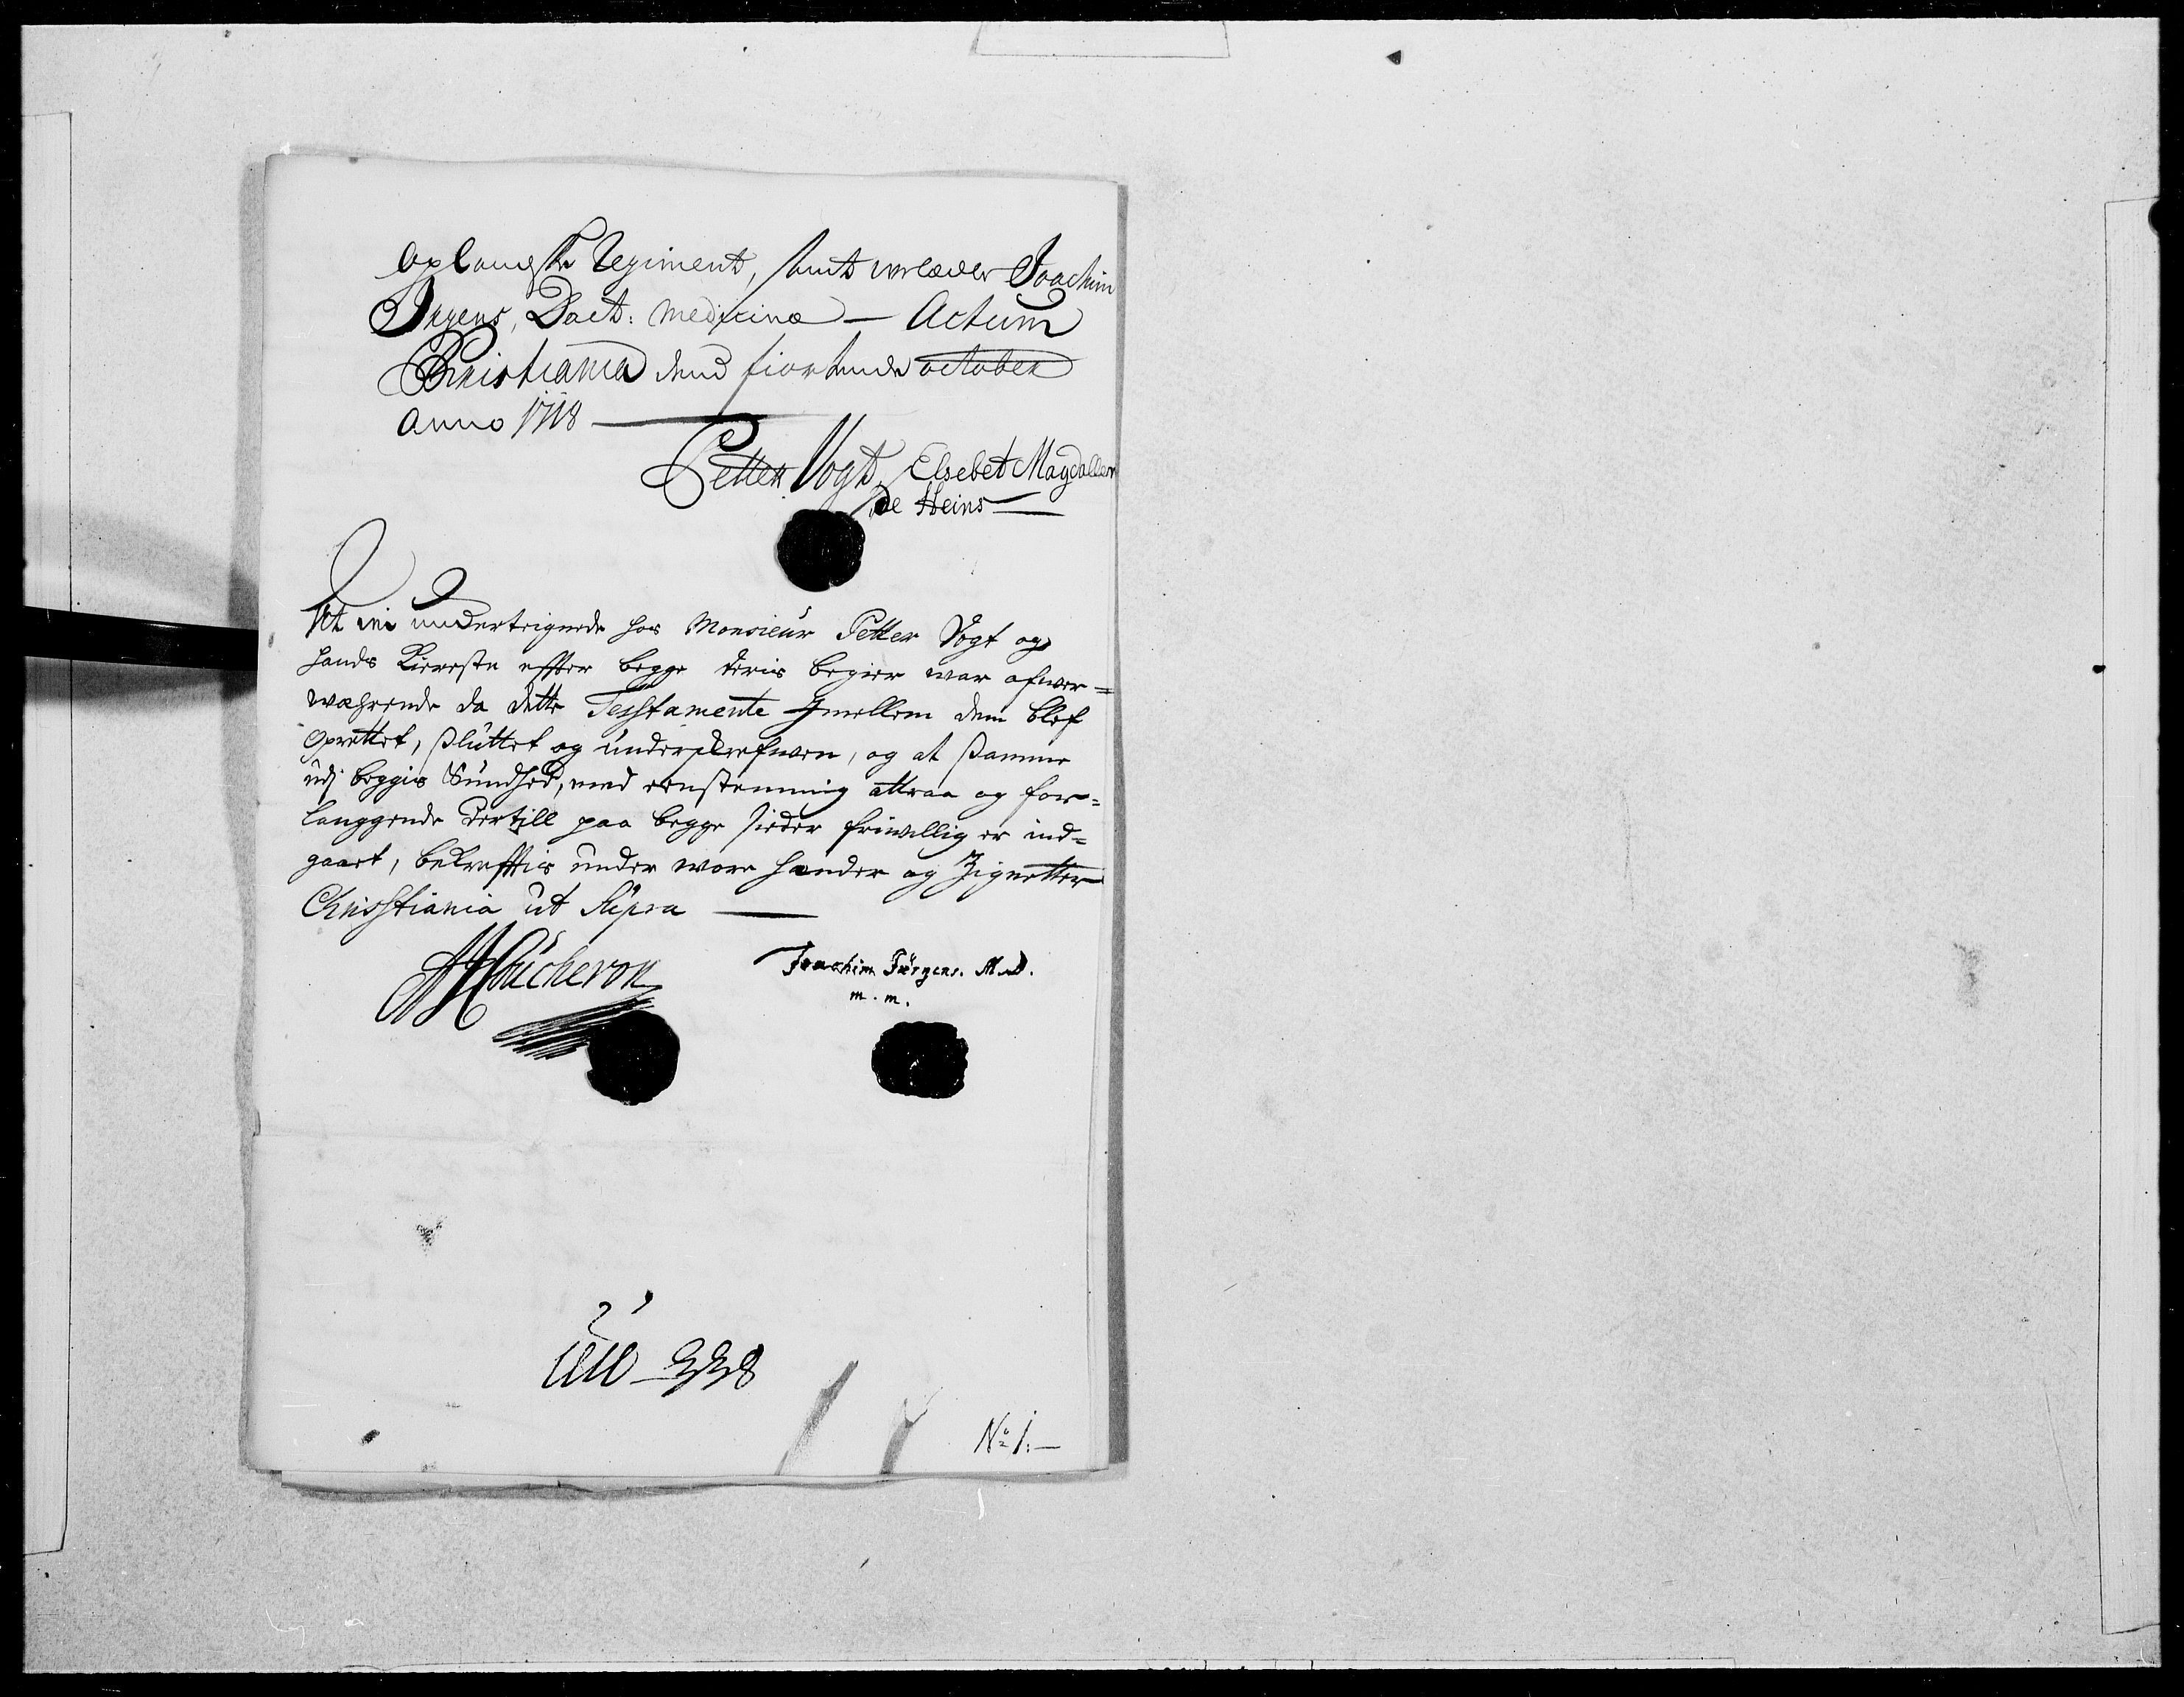 Oplandske Regiment, samt velædle Joachim
Irgens, Doct: Medicinæ — Actum
Christiania dend fiortende october
Anno 1718 —
Petter Vogt, Elsebet Magdallen
De Heins —
At vi underteignede hos Monsieur Petter Vogt og
hands Kiereste effter begge deris begier war ofwer=
wærende da dette Tesstamente Imellem dem blef
Oprettet, sluttet og underskrefwen, og at samme
udj beggis Sundhed, med eenstemmig attraa og for=
langgende dertill paa begge sieder friwillig er ind=
gaaet, bekrefftis under wore hænder og Zignetter
Chrisstiania ut Supra —
Joachim Jürgens. M.D.
m. m.
No 1: —